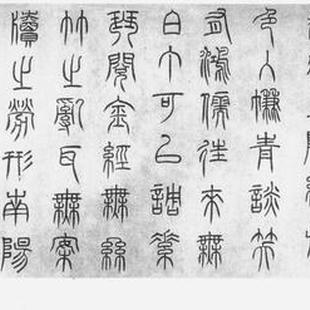 色入簾青談笑
有鴻儒往來無
白丁可以調素
琴閱金經無絲
竹之亂耳無案
牘之勞形南陽